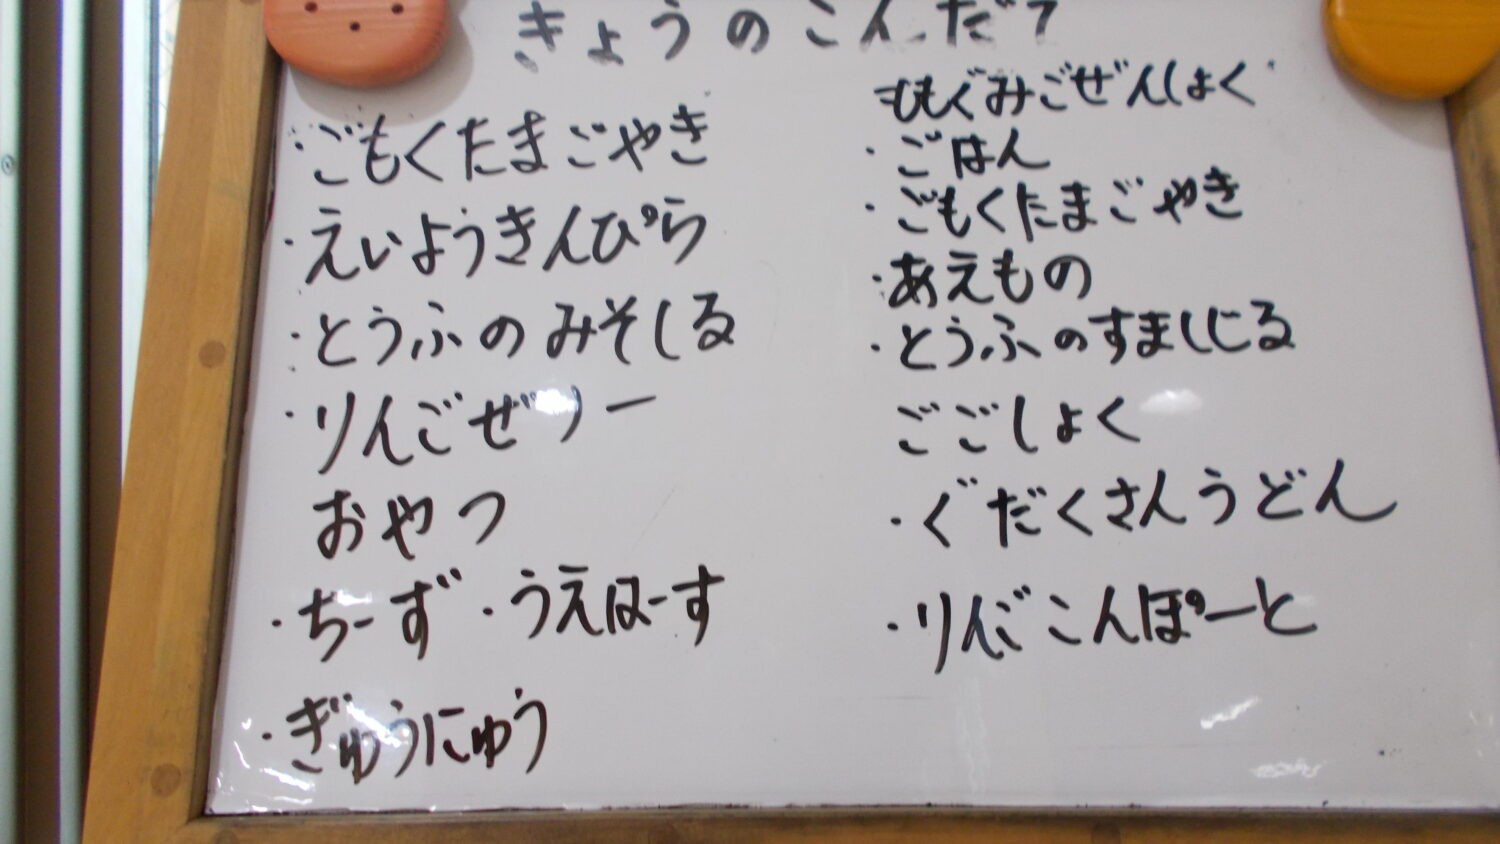 きょうのこんだて
・ごもくたまごやき
・えいようきんぴら
・とうふのみそしる
・りんごぜりー
おやつ
・ちーず・うえはーす
・ぎゅうにゅう
ももぐみごぜんしょく
・ごはん
・ごもくたまごやき
・あえもの
・とうふのすましじる
ごごしょく
・ぐだくさんうどん
・りんごこんぽーと